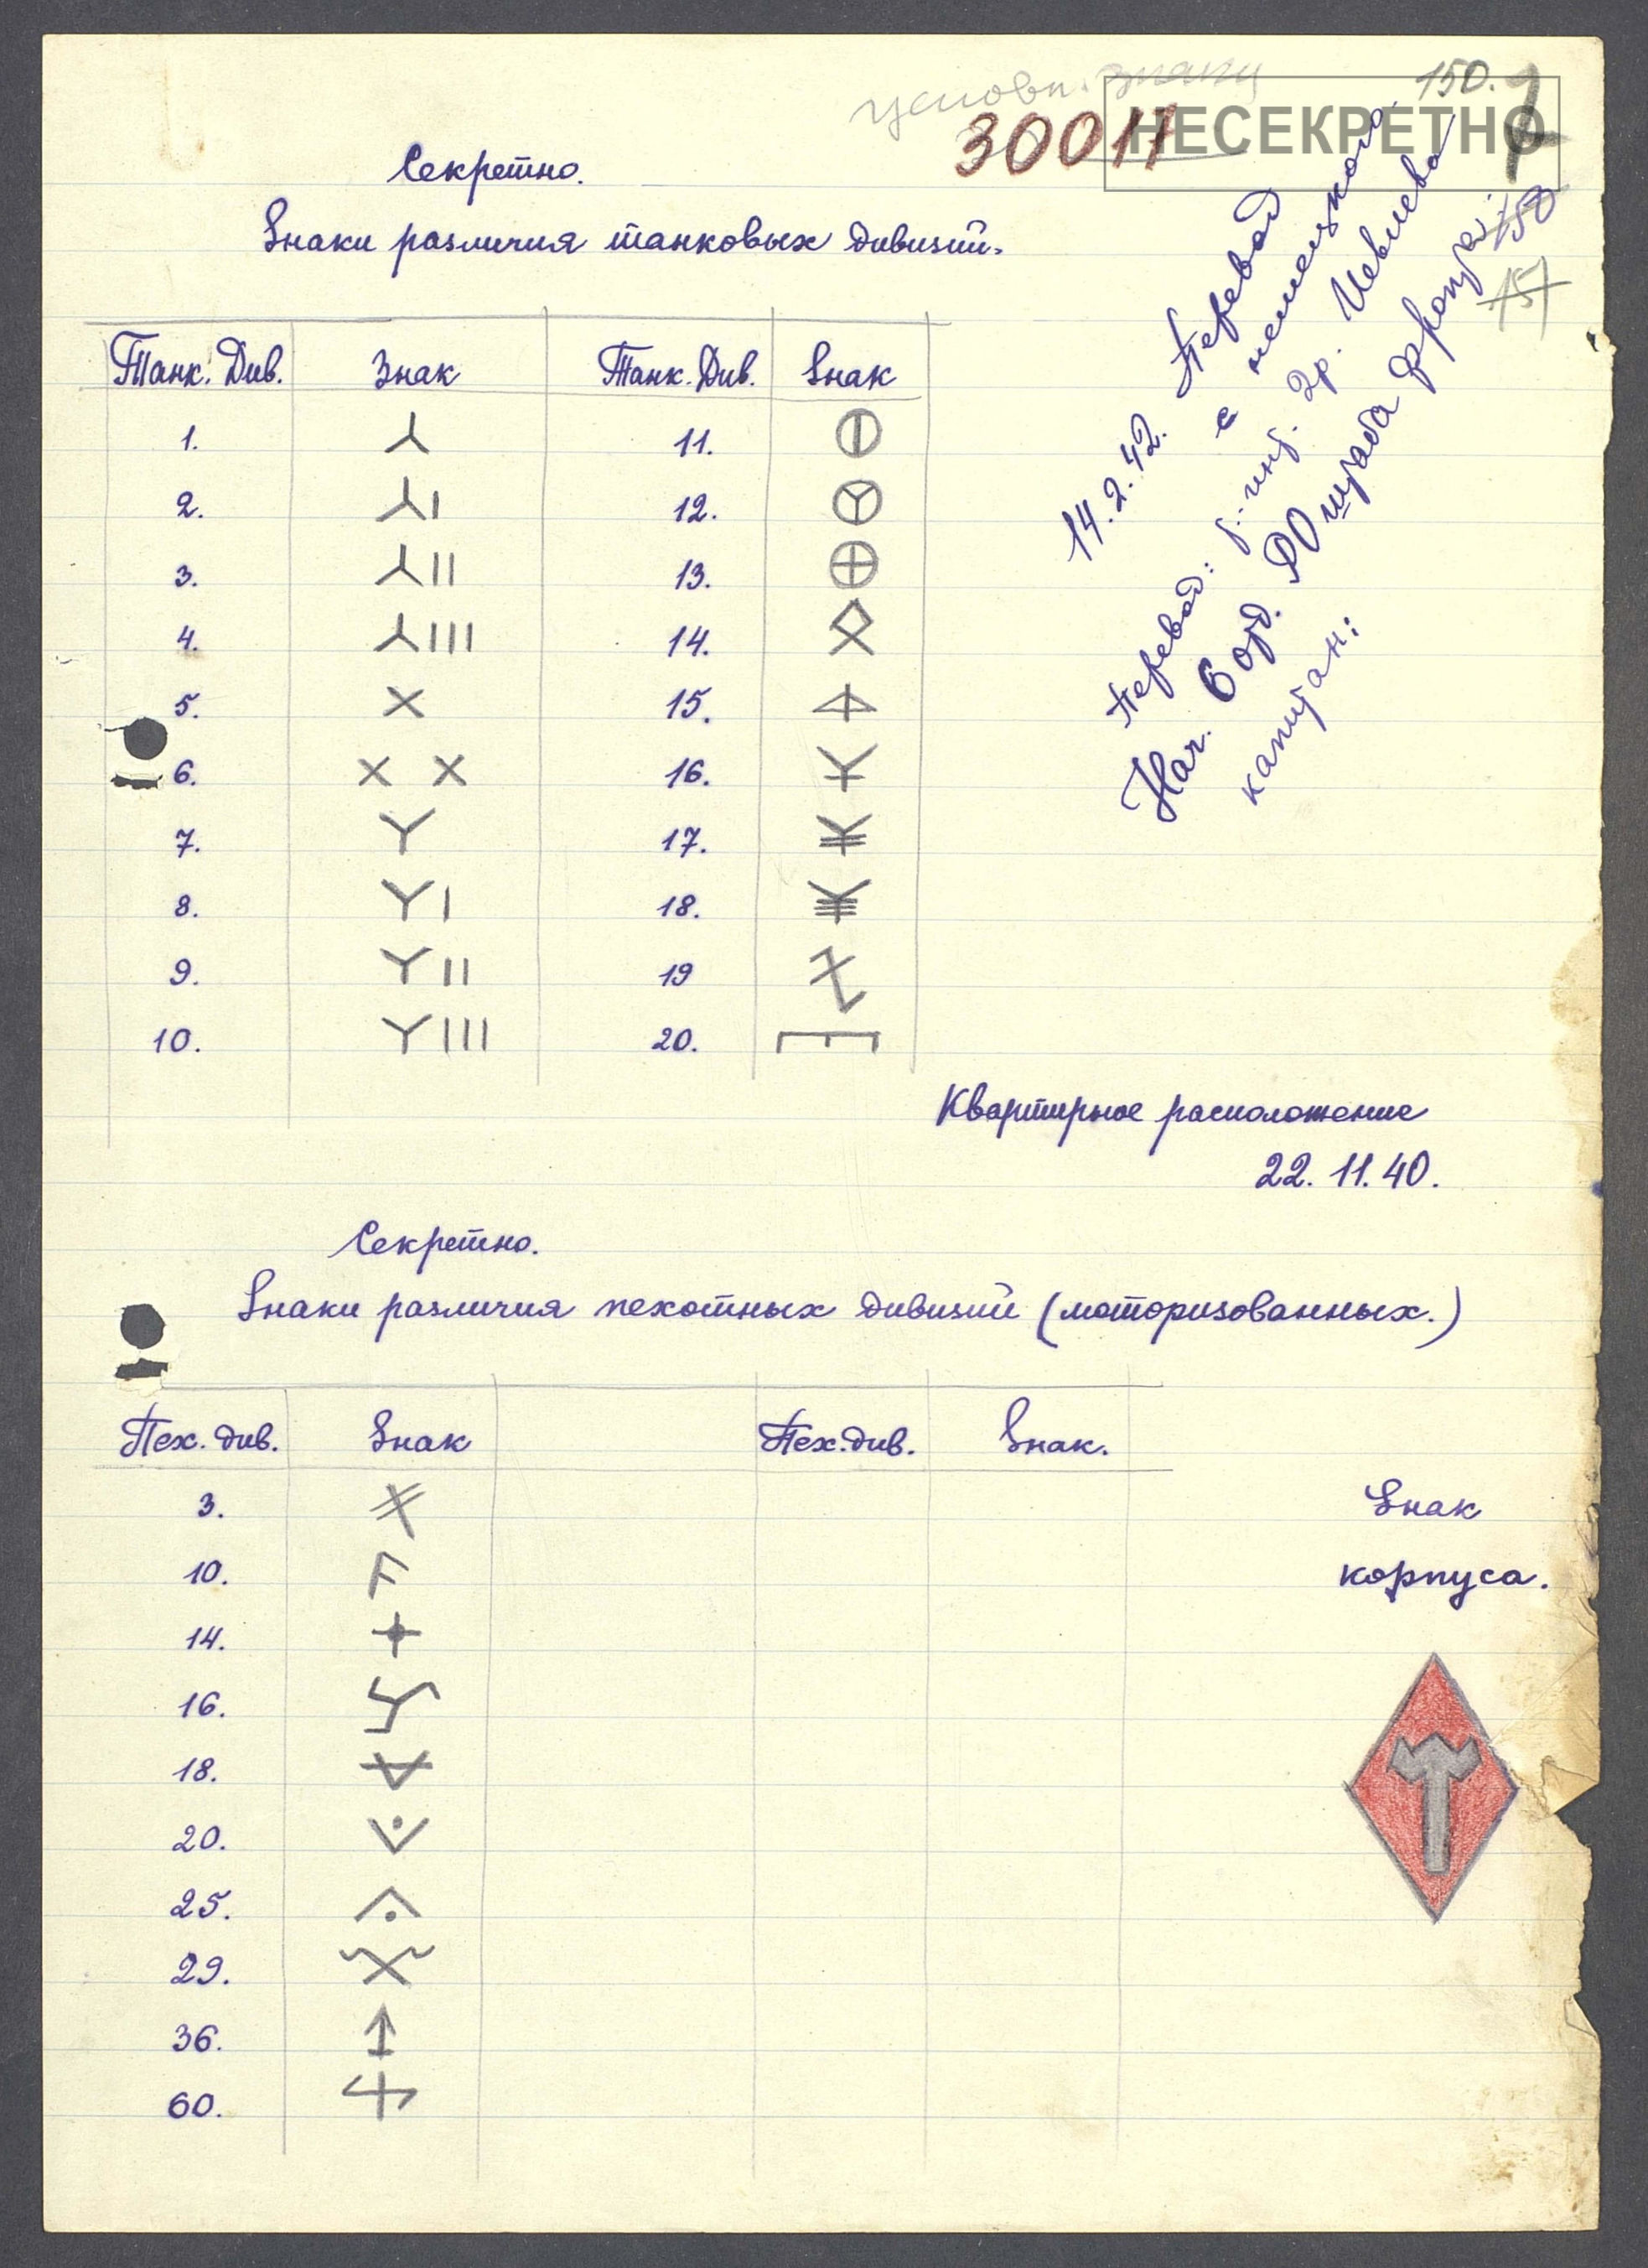 условн. знаки
150.
30011
НЕСЕКРЕТНО
7
Секретно.
Знаки различия танковых дивизий.
158
157
14.2.42. Перевод
с немецкого.
Перевод:
Нач. 6 отд. РО штаба фронта:
капитан:
Танк. Див. Знак Танк. Див. Знак
1. 11.
2. 12.
3. 13.
4. 14.
5. 15.
6. 16.
7. 17.
8. 18.
9. 19
10. 20.
Квартирное расположение
22. 11. 40.
Секретно.
Знаки различия пехотных дивизий (моторизованных.)
Пех. див. Знак Пех. див. Знак.
3.
10.
14.
16.
18.
20.
25.
29.
36.
60.
Знак
корпуса.